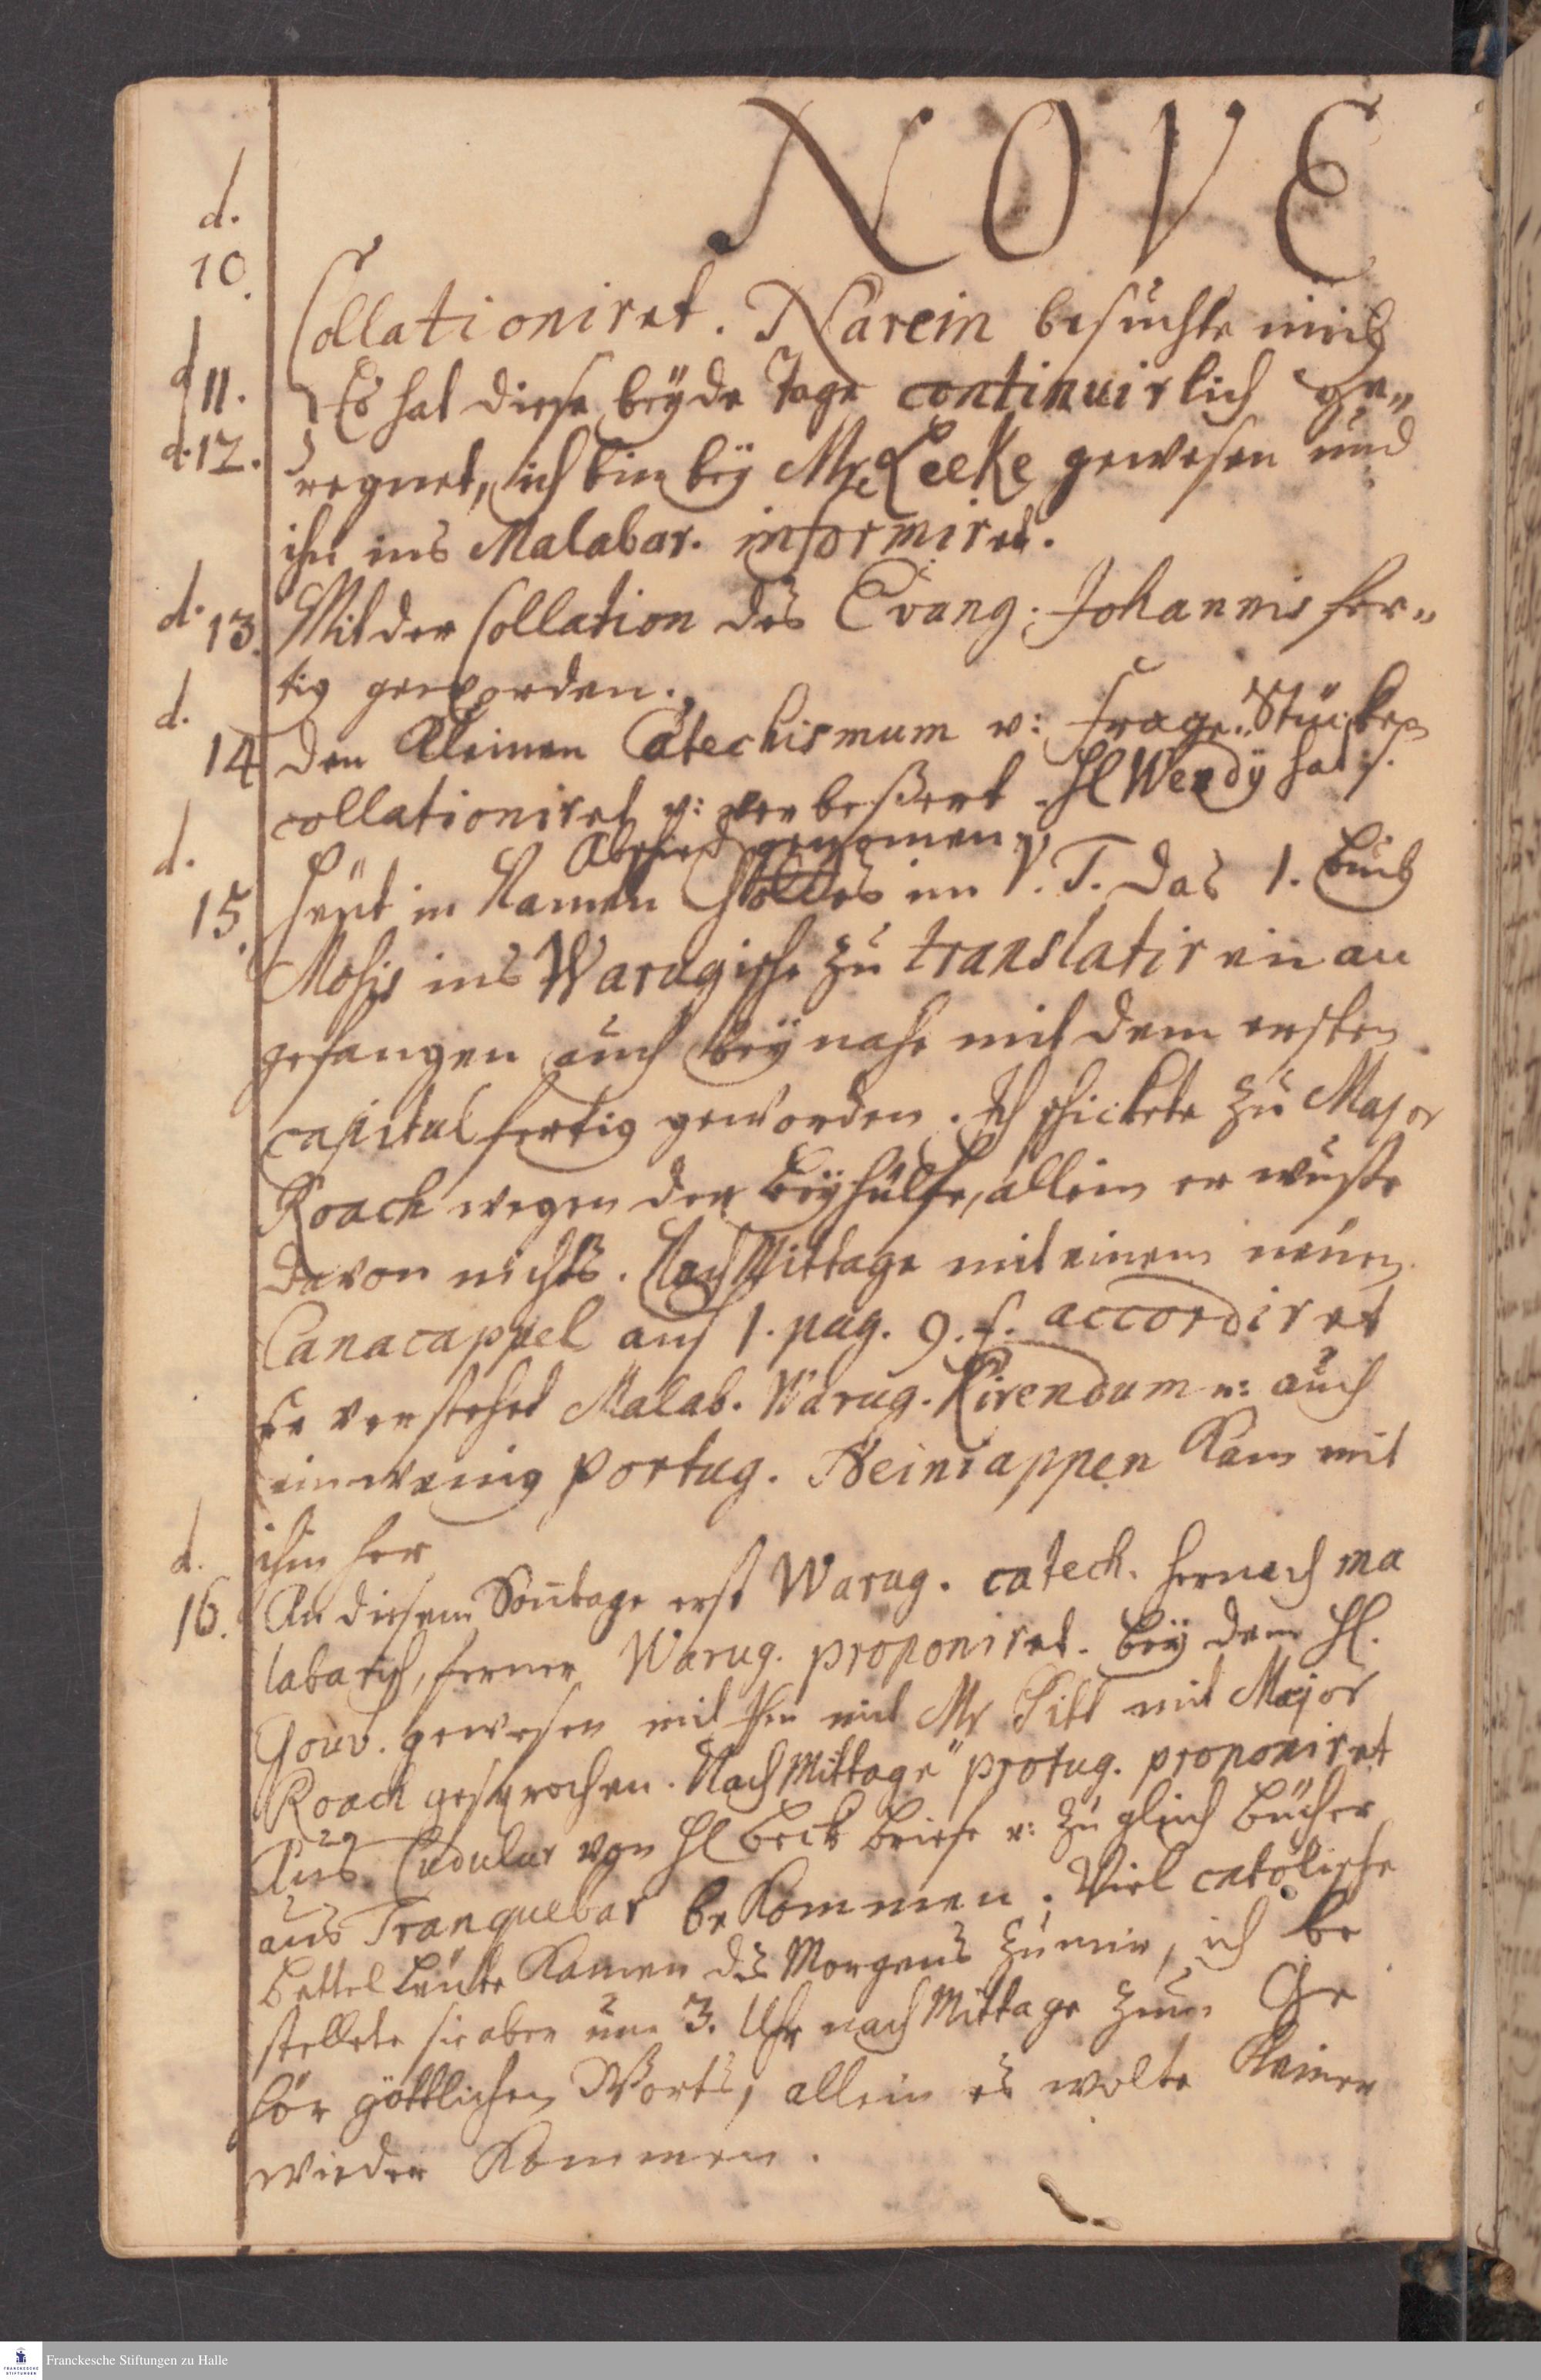 NOVE
d. 10. Collationiret. Narein besuchte mich
d 11. Es hat diese beyde Tage continuirlich ge„
d. 12. regnet, ich bin bey Mr. Leeke gewesen und
ihn ins Malabar. informiret.
d. 13. Mit der Collation des Evang. Johannis fer„
tig geworden.
d. 14 den Kleinen Catechismum u: Frage-Stücken
collationiret u: verbeßert. Hl Wendÿ hat
Abschied genomen
d. 15. Heut in Namen Gottes im V. T. das 1. Buch
Mosis ins Warugische zu translatiren an
gefangen auch beÿ nahe mit dem ersten
capitul fertig geworden. Ich schickete zu Major
Roach wegen der Beÿhülfe, allein er wuste
davon nichts. NachMittage mit einem neuen
Canacappel auf 1. pag. 9. f. accordiret
er verstehet Malab. Warug. Kirendum u: auch
ein wenig portug. Neiniappen Kam mit
ihm her
d. 16. An diesem Soñtage erst Warug. catech. hernach ma
labarisch, ferner Warug. proponiret. beÿ dem Hl.
Gouv. gewesen mit ihm mit Mr Pitt mit Major
Roach gesprochen. NachMittage protug. proponiret
Aus Cudulur von Hl Beck Briefe u: zu gleich Bücher
aus Tranquebar beKommen. Viel catolische
Bettel Leute Kamen des Morgens zu mir, ich be
stellete sie aber um 3. Uhr nachMittage zum Ge
hör göttlichen Worts, allein es wolte Keiner
wieder Kommen.
Franckesche Stiftungen zu Halle